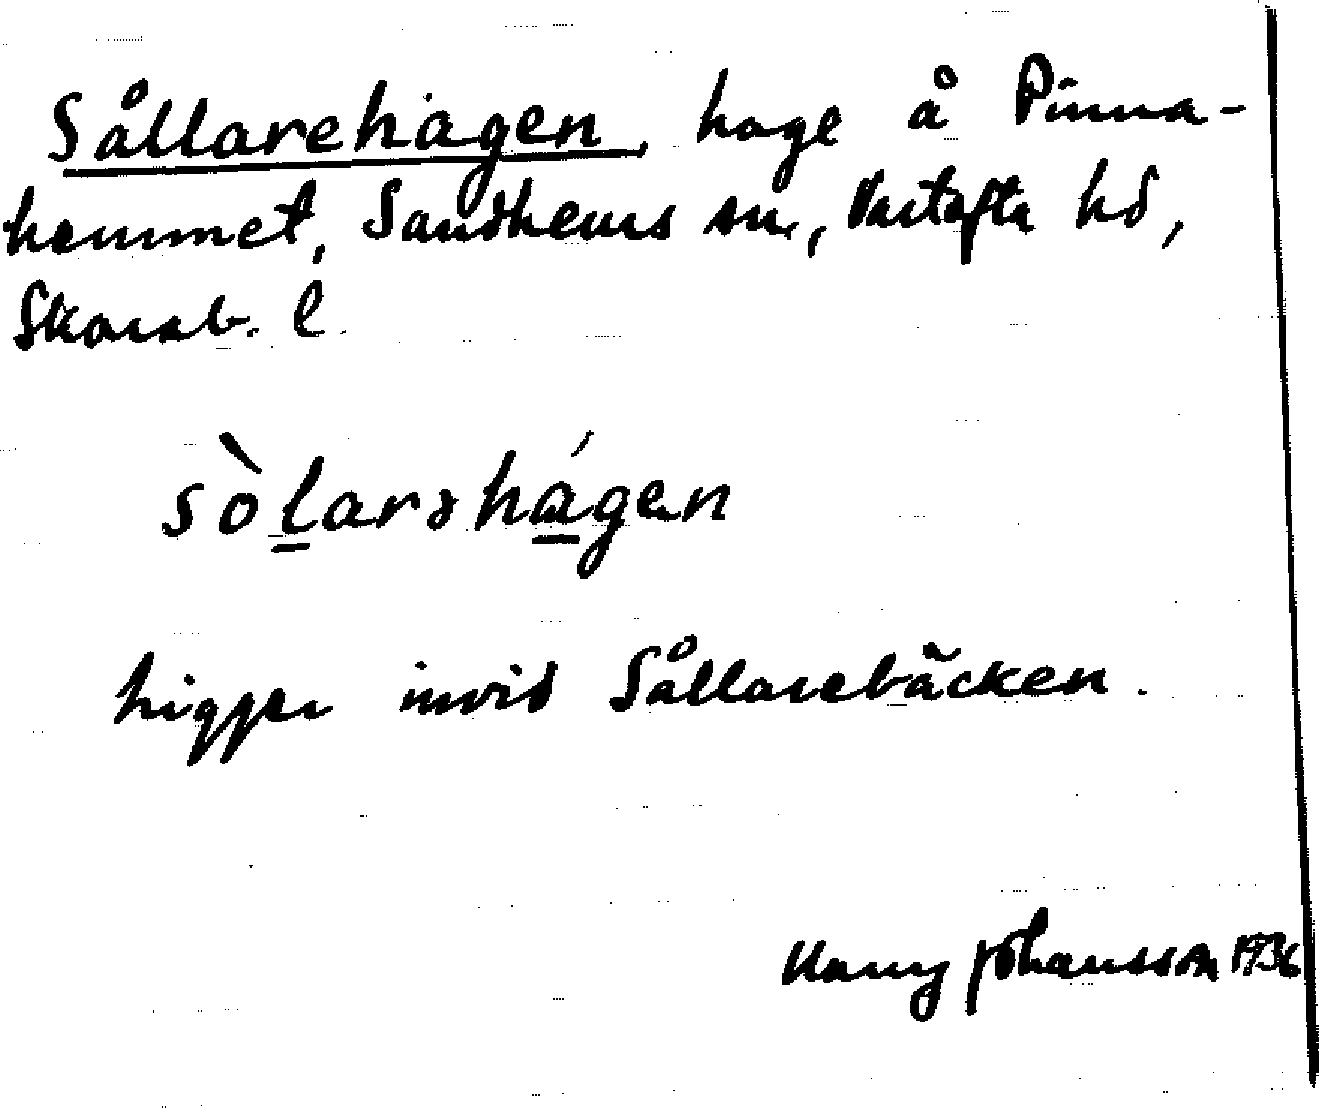 Sållarehagen, hage å Pinna-
hemmet, Sandhems sn, Vartofta hd,
Skarab. l.
sòlarəhágen
ligger invid Sållarebäcken.
Harry Johansson 1936